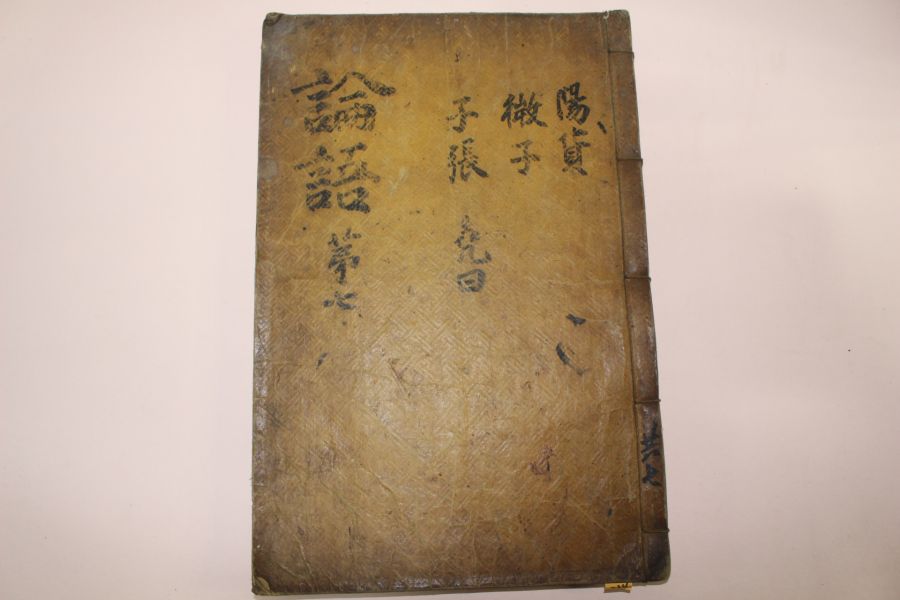 陽貨
微子
子張 堯曰
論語 第七
共七